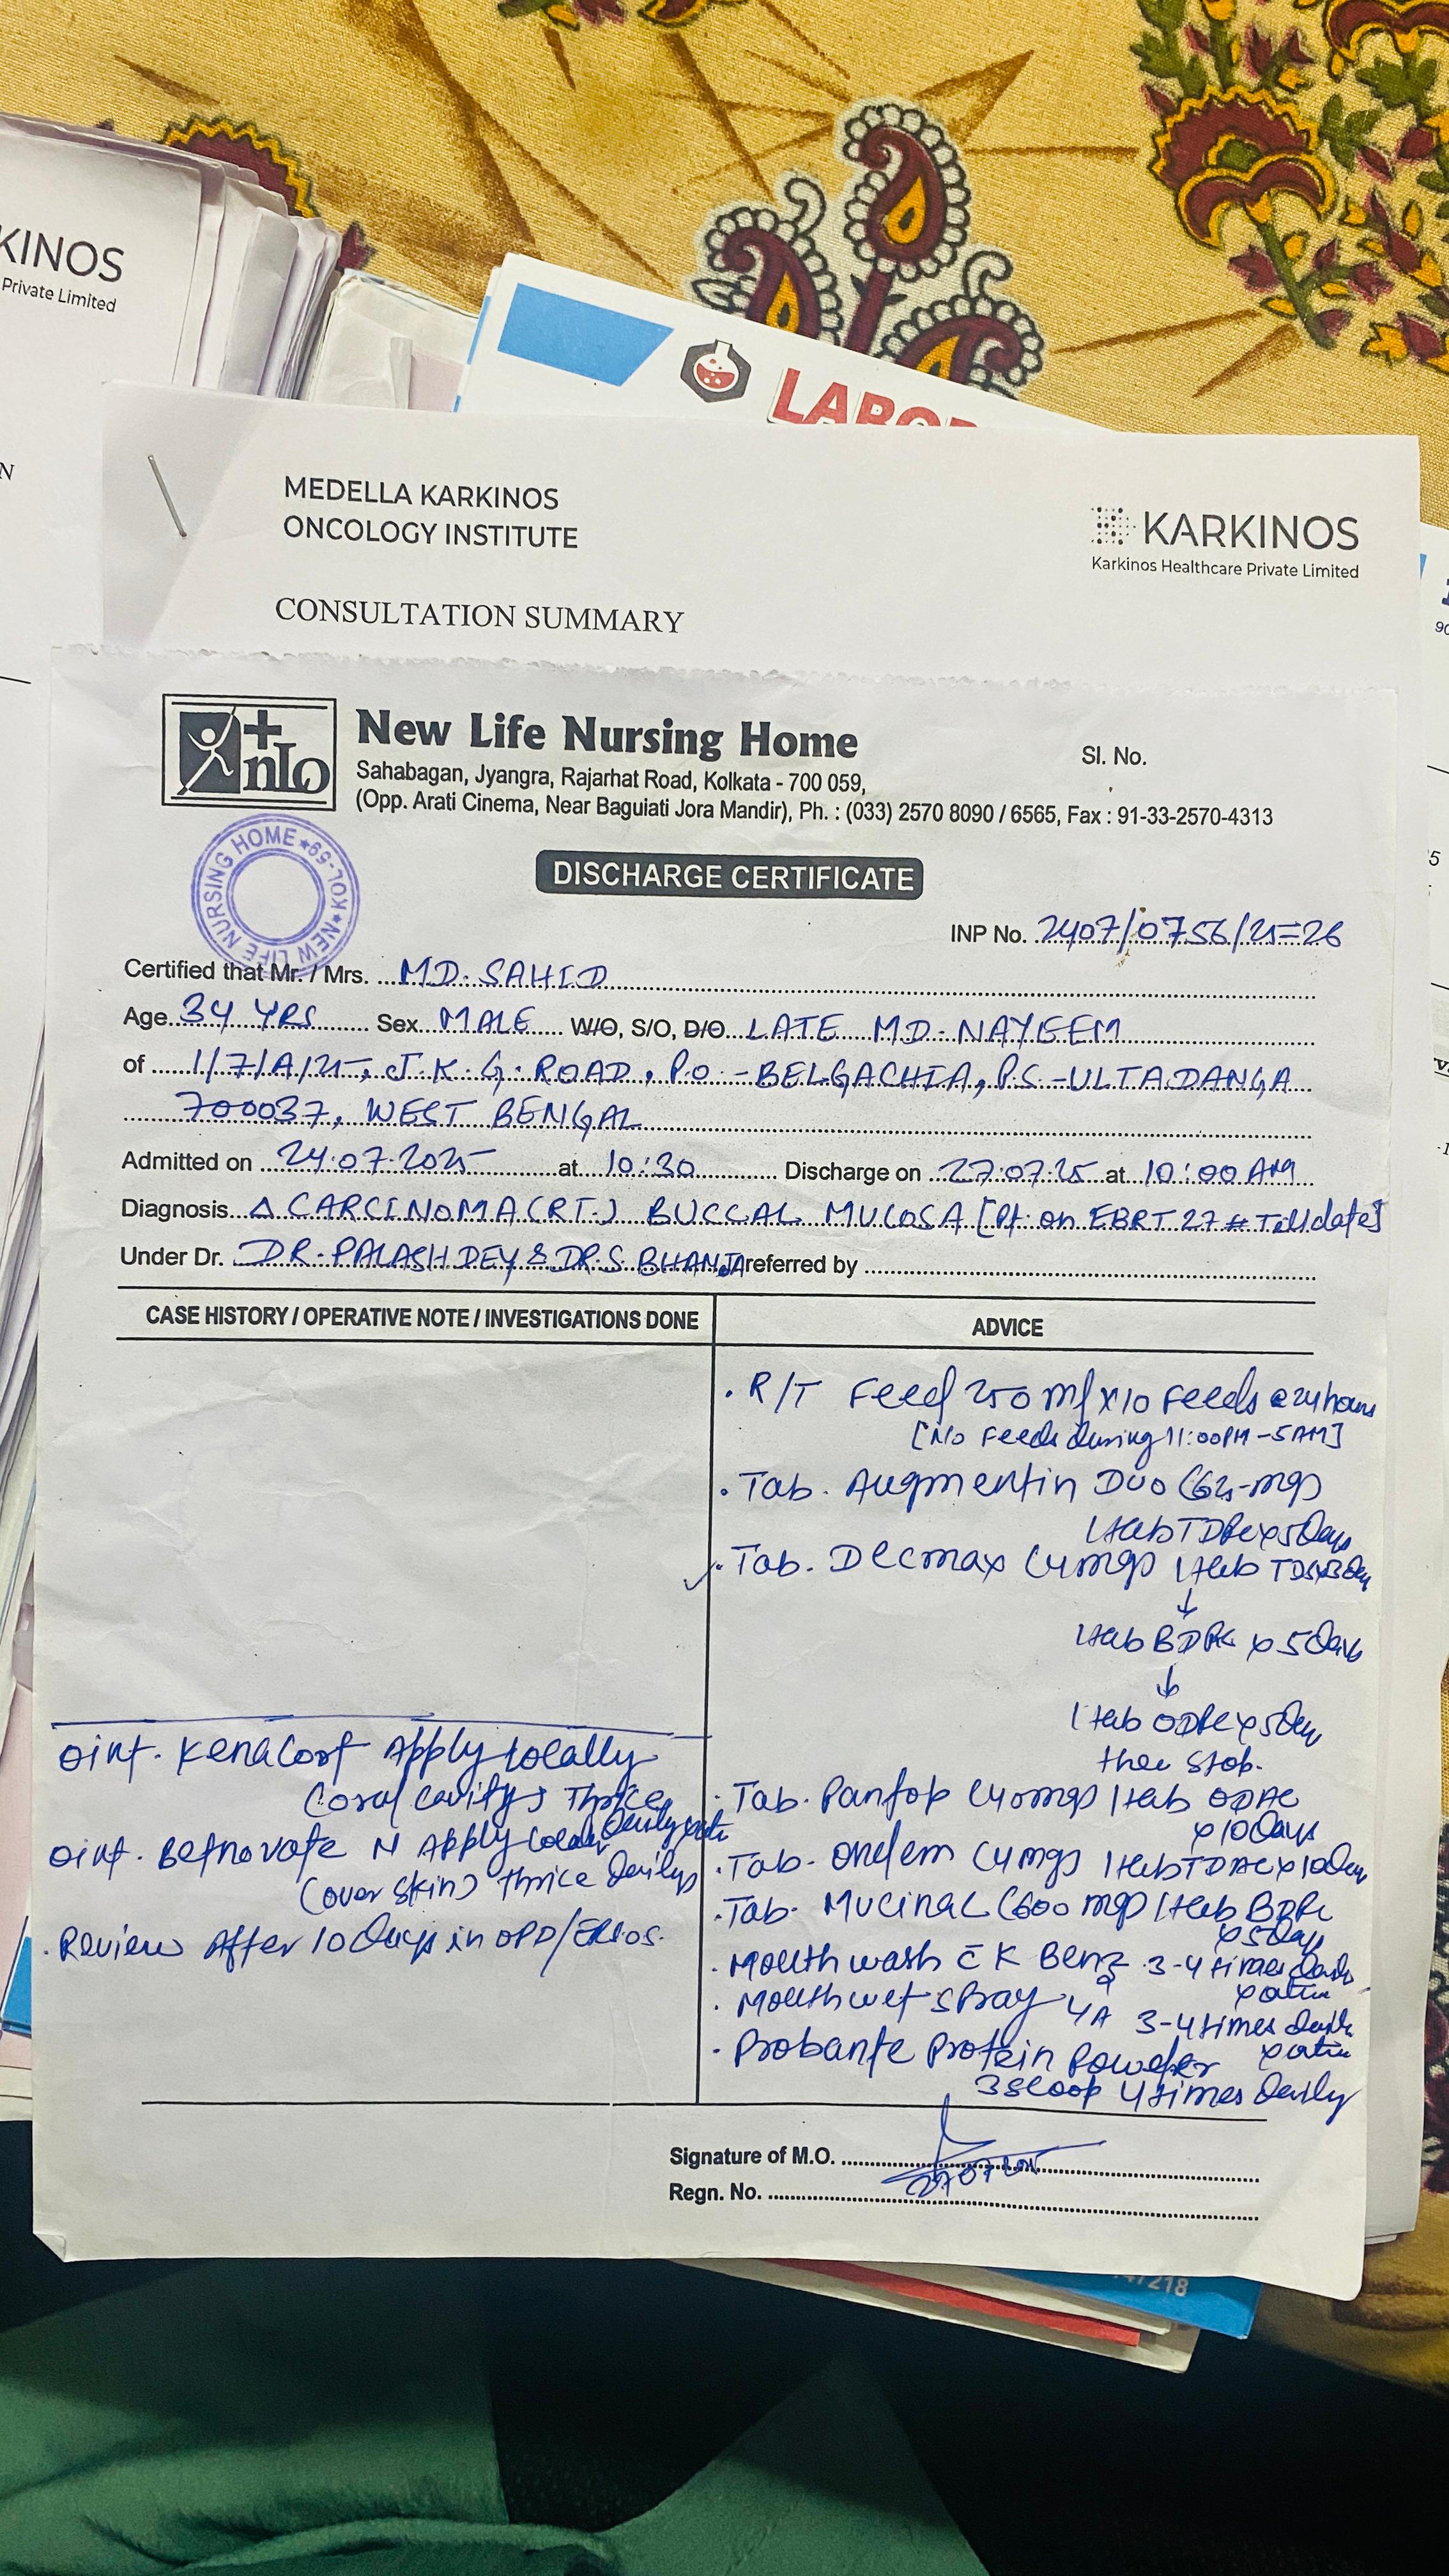 KINOS
Private Limited
LABOR
MEDELLA KARKINOS
ONCOLOGY INSTITUTE
KARKINOS
Karkinos Healthcare Private Limited
CONSULTATION SUMMARY
nlo
New Life Nursing Home
Sl. No.
Sahabagan, Jyangra, Rajarhat Road, Kolkata - 700 059,
(Opp. Arati Cinema, Near Baguiati Jora Mandir), Ph. : (033) 2570 8090 / 6565, Fax : 91-33-2570-4313
NEW LIFE NURSING HOME ★ KOL-59 ★
DISCHARGE CERTIFICATE
INP No. 2407/0756/25-26
Certified that Mr. / Mrs. MD. SAHID
Age 34 YRS Sex MALE W/O, S/O, D/O LATE MD. NAYEEM
of 1/7/A/25, J.K.G. ROAD, P.O - BELGACHIA, P.S - ULTADANGA
700037, WEST BENGAL
Admitted on 24.07.2025 at 10:30 Discharge on 27.07.25 at 10:00 AM
Diagnosis Δ CARCINOMA (RT.) BUCCAL MUCOSA [Pt. on EBRT 27 # Till date]
Under Dr. DR. PALASH DEY & DR. S. BHANJA referred by
CASE HISTORY / OPERATIVE NOTE / INVESTIGATIONS DONE
ADVICE
. R/T Feed 250 ml x 10 Feeds @ 24 hours
[No Feeds during 11:00PM - 5AM]
. Tab. Augmentin Duo (625mg)
1 tab TDPC x 5 Days
. Tab. Decmax (4mg) 1 tab TDS x 3
↓
1 tab BDPC x 5 Days
↓
1 tab ODPC x 5 Day
then stop.
. Tab. Pantop (40mg) 1 tab ODAC
x 10 Days
. Tab. Ondem (4mg) 1 tab TDAC x 10 Day
. Tab. Mucinac (600 mg) 1 tab BDPC
x 5 Days
. Mouth wash c̄ K Benz 3-4 times daily
. Mouth wet spray 3-4 times daily
. Probante Protein Powder
3 scoop 4 times Daily
Oint. Kenacort Apply locally
(oral cavity) Thrice
Daily
Oint. Betnovate N Apply locally
(over skin) Thrice Daily
. Review After 10 Days in OPD
Signature of M.O.
27.07.2025
Regn. No.
47218